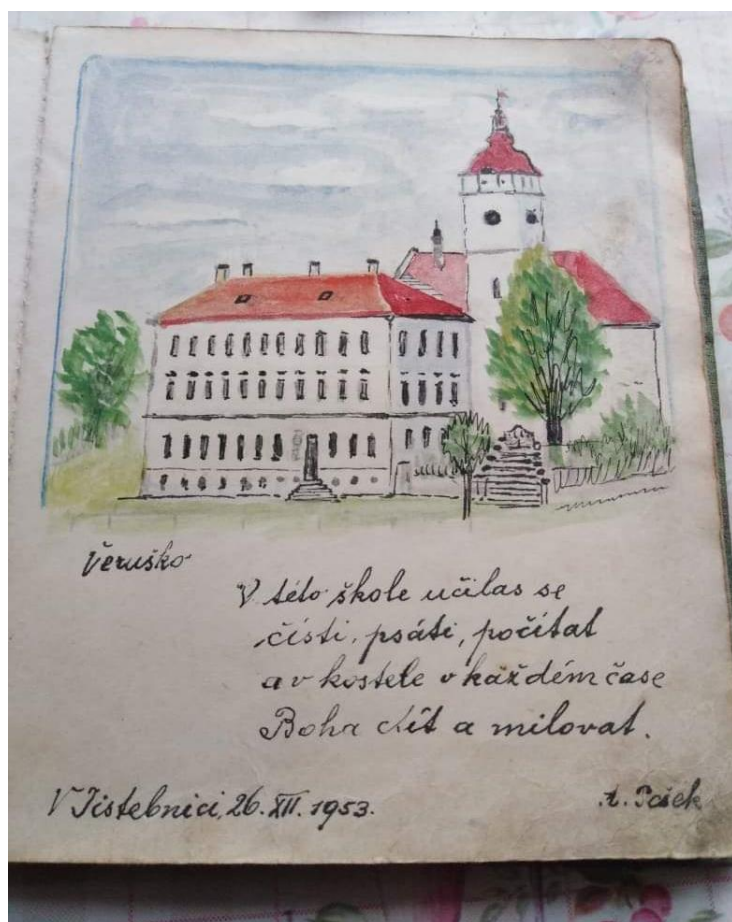 Věruško
V této škole učilas se
čísti, psáti, počítat
a v kostele v každém čase
Boha ctít a milovat.
V Jistebnici, 26. XII. 1953.